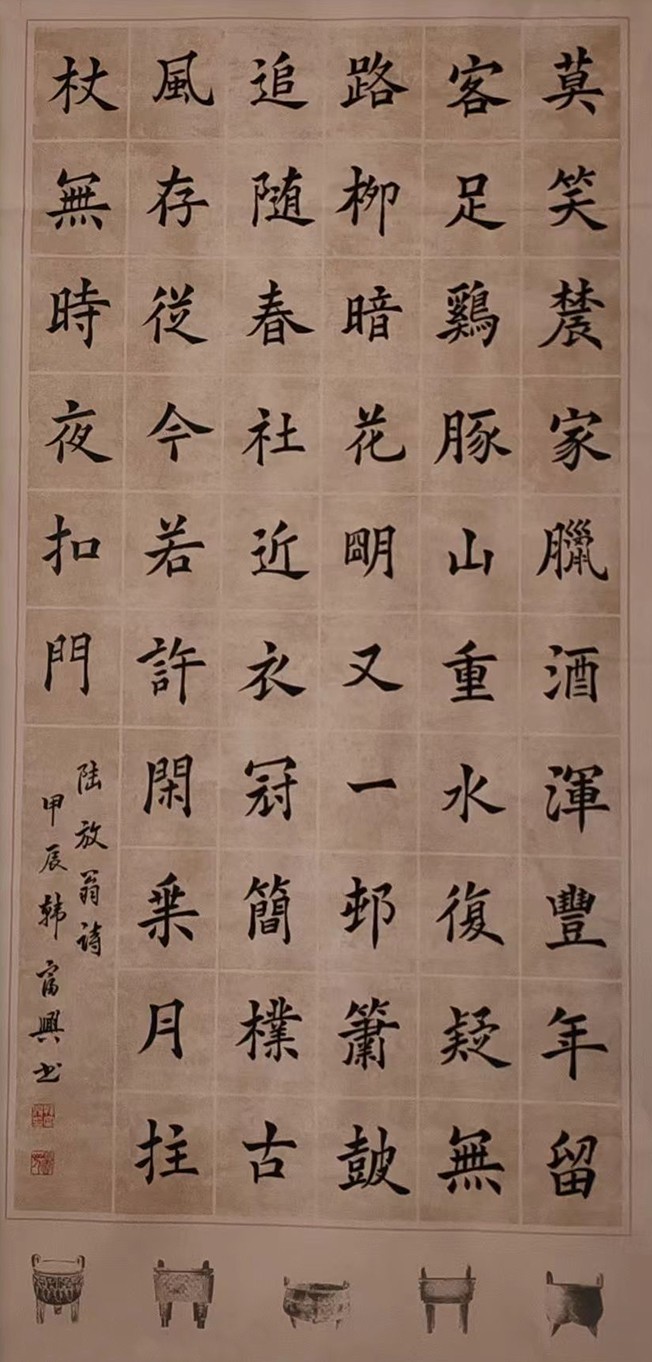 莫笑農家臘酒渾豐年留
客足鷄豚山重水復疑無
路柳暗花明又一邨簫鼓
追隨春社近衣冠簡樸古
風存從今若許閑乘月拄
杖無時夜扣門
陆放翁詩
甲辰韩富興书